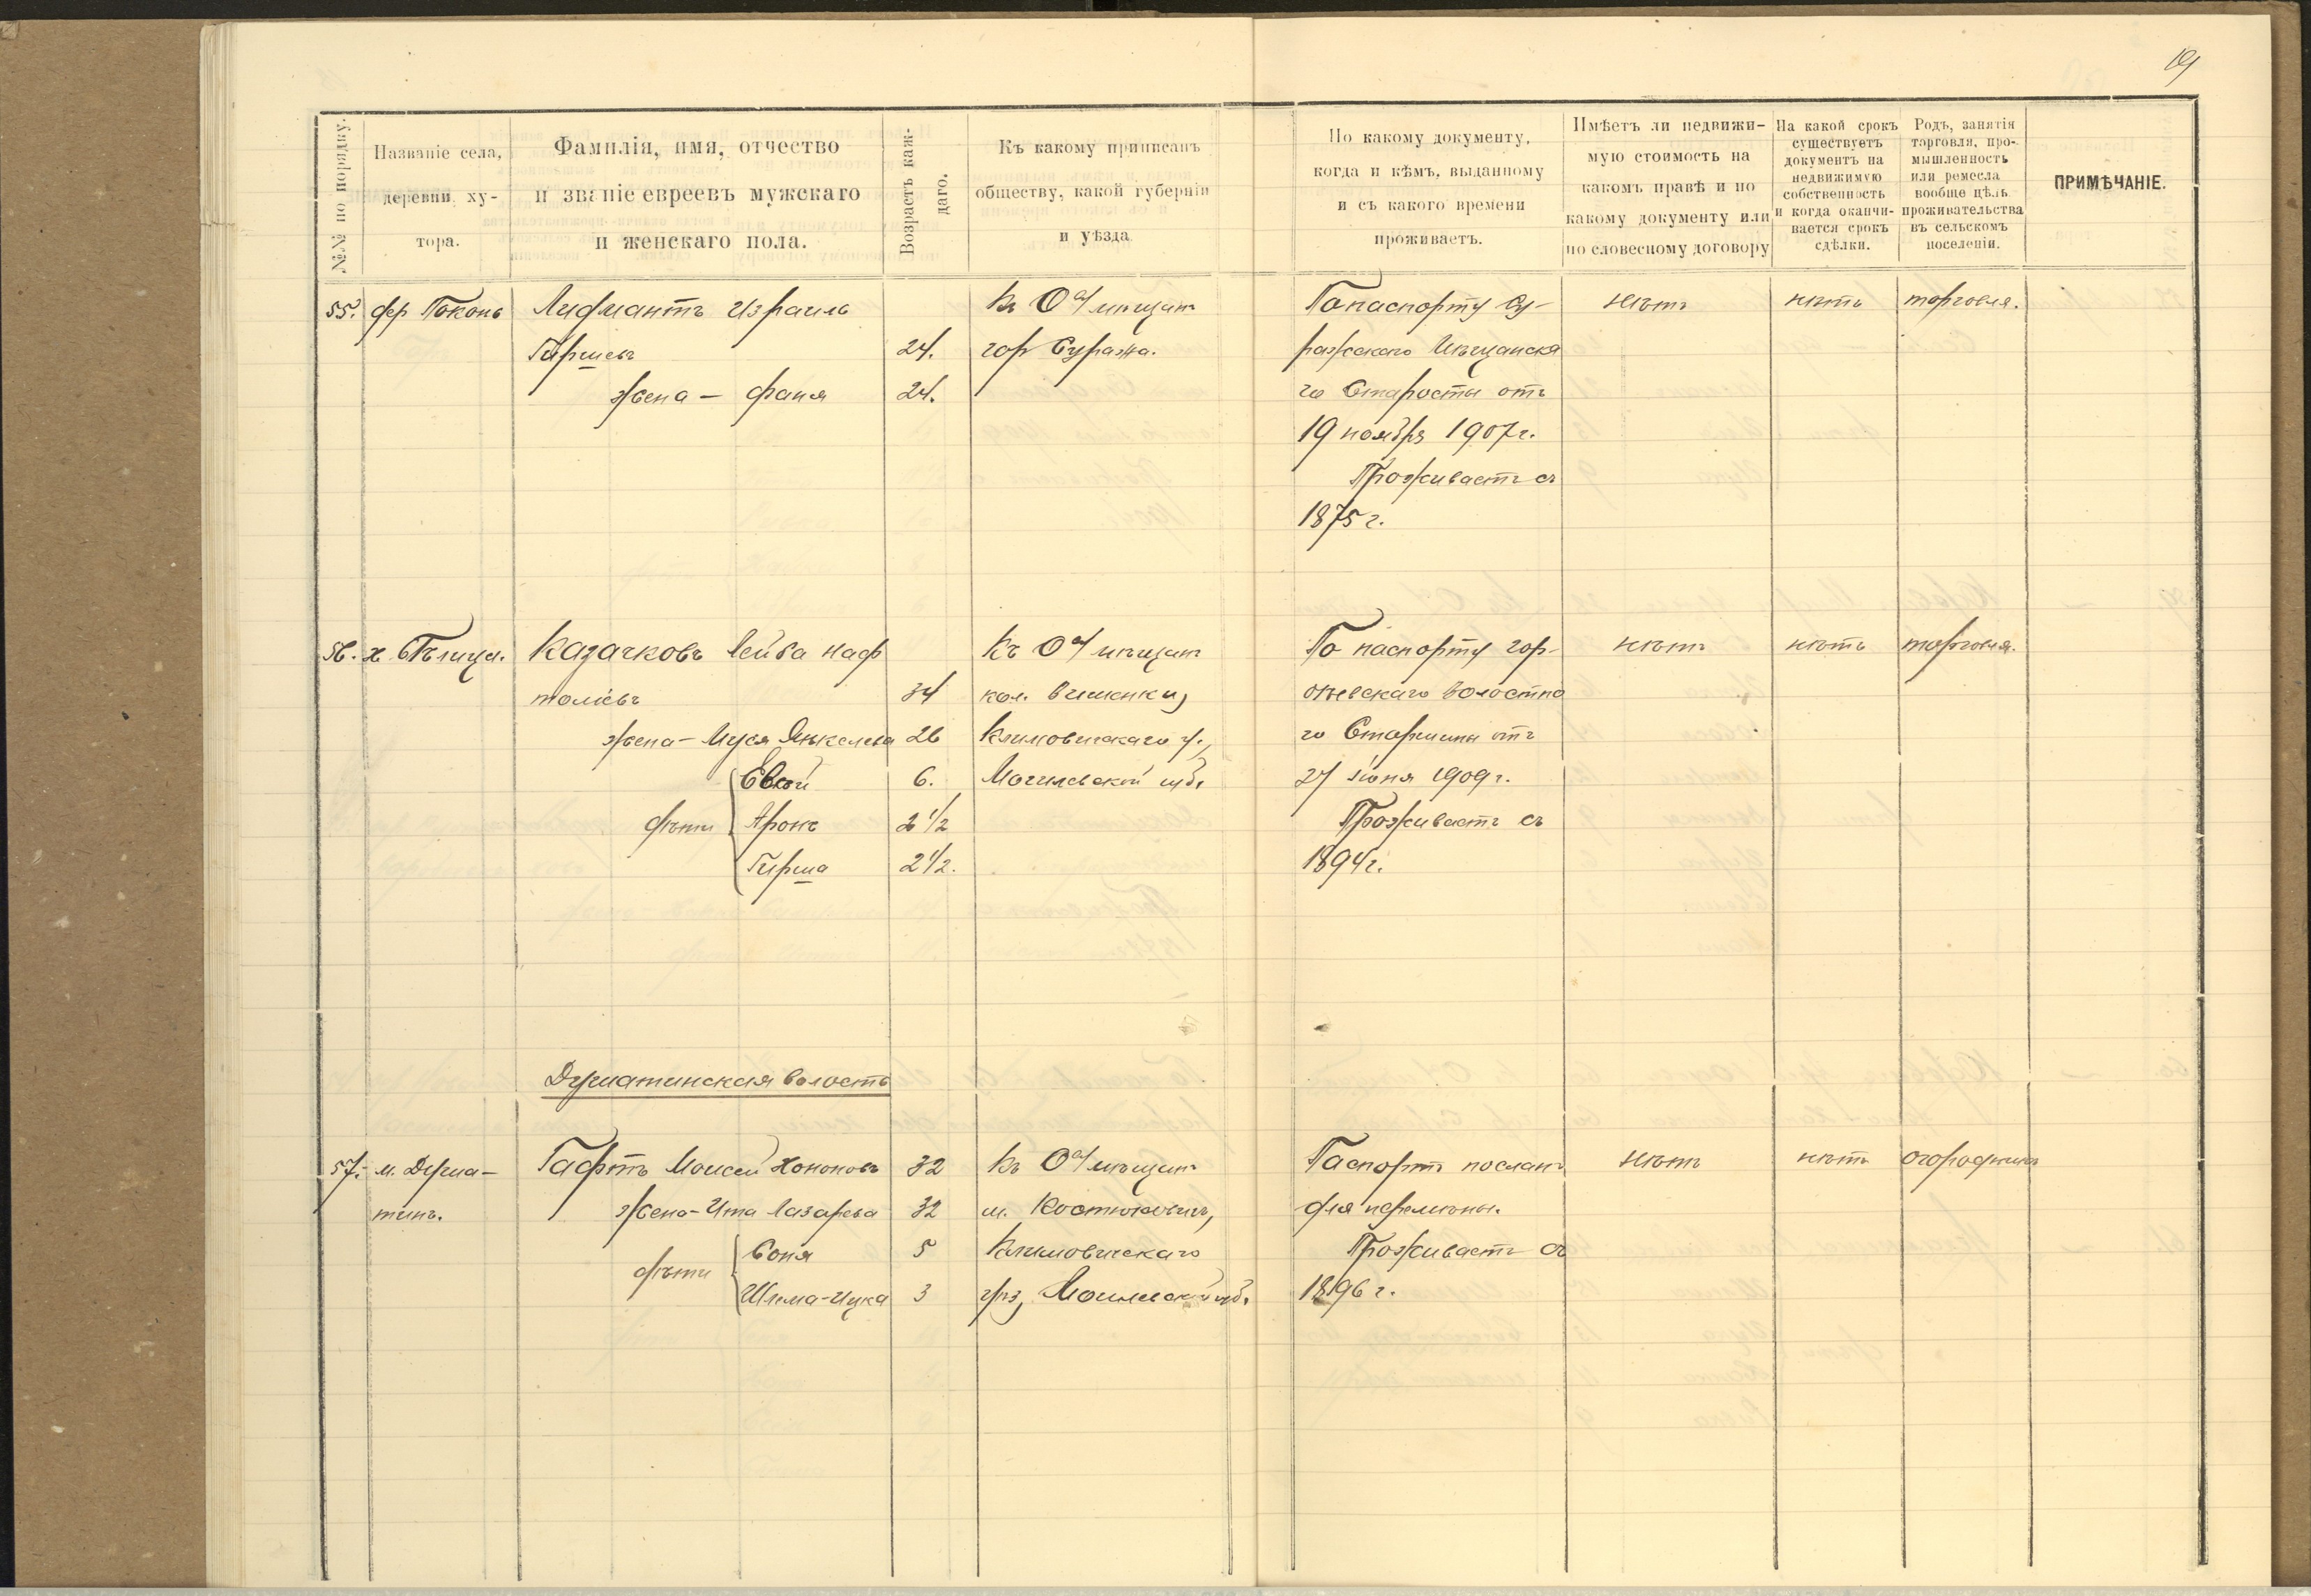 19
№№ по порядку.
Названіе села, деревни, хутора.
Фамилія, имя, отчество
и званіе евреевъ мужскаго
и женскаго пола.
Возрастъ каждаго.
Къ какому приписанъ
обществу, какой губерніи
и уѣзда
По какому документу,
когда и кѣмъ, выданному
и съ какого времени
проживаетъ.
Имѣетъ ли недвижи-
мую стоимость на
какомъ правѣ и по
какому документу или
по словесному договору
На какой срокъ
существуетъ
документъ на
недвижимую
собственность
и когда оканчи-
вается срокъ
сдѣлки.
Родъ, занятія
торговля, про-
мышленность
или ремесла
вообще цѣль
проживательства
въ сельскомъ
поселеніи.
ПРИМѢЧАНІЕ.
55. дер Поконь Лифшантъ Израиль Къ О-ву мѣщанъ По паспорту Су- нѣтъ нѣтъ торговля.
Гиршевъ 24. гор Суража. ражскаго Мѣщанска
жена – Фаня 24. го Старосты отъ
19 ноября 1907 г.
Проживаетъ съ
1875 г.
56. х. Казачковъ Лейба Наф Къ О-ву мѣщанъ По паспорту гор- нѣтъ нѣтъ торговля.
толіевъ 34 кол. волостно
жена – Муся Янкелева 26 Климовичскаго у., го Старшины отъ
6. Могилевской губ. 27 іюня 1909 г.
дѣти Аронъ 2 1/2 Проживаетъ съ
Гирша 2 1/2. 1894 г.
Душатинская волость
57. м. Душа- Гафтъ Моисей Хононовъ 32 Къ О-ву мѣщанъ Паспортъ посланъ нѣтъ нѣтъ огородникъ
тинъ. жена – Ита Лазарева 32 м. Костюковичъ, для перемѣны.
дѣти Соня 5 Климовичскаго Проживаетъ съ
Шлема-Ицка 3 уѣз, Могилевской губ. 1896 г.